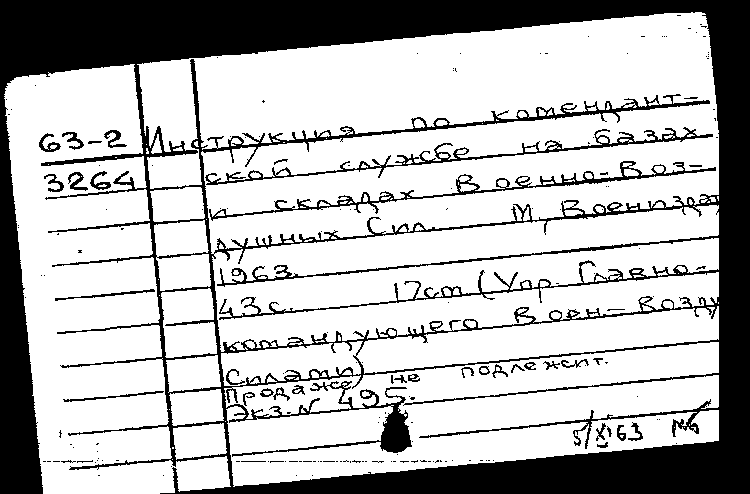 63-2 Инструкция по комендант-
3264 ской службе на базах
и складах Военно-Воз-
душных Сил. М, Воениздат
1963.
43с. 17cm (Упр. Главно-
командующего Воен-Возду
Силами)
Продаже не подлежит.
Экз. N 495.
5/XI 63